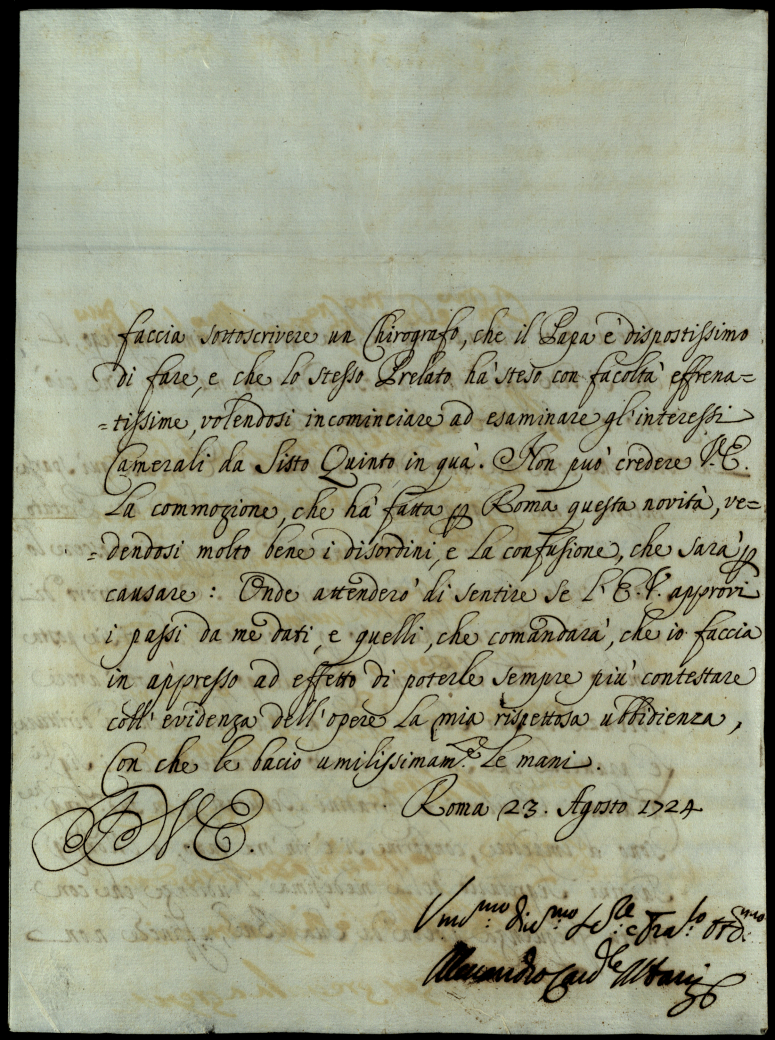 faccia sottoscrivere un Chirografo, che il Papa è dispostissimo
di fare, e che lo stesso Prelato hà steso con facoltà effrena=
=tissime, volendosi incominciare ad esaminare gl'interessi
Camerali da Sisto Quinto in quà. Non può credere V.E.
la commozione, che hà fatta p Roma questa novità, ve=
=dendosi molto bene i disordini, e la confusione, che sarà p
causare: Onde attenderò di sentire se l'E.V. approvi
i passi da me dati, e quelli, che comandarà, che io faccia
in appresso ad effetto di poterle sempre più contestare
coll'evidenza dell'opere la mia rispettosa ubbidienza,
Con che le bacio umilissimam.te le mani.
Roma 23. Agosto 1724
V.E.
Um.mo Div.mo Se.re
Alessandro Card.le Albani